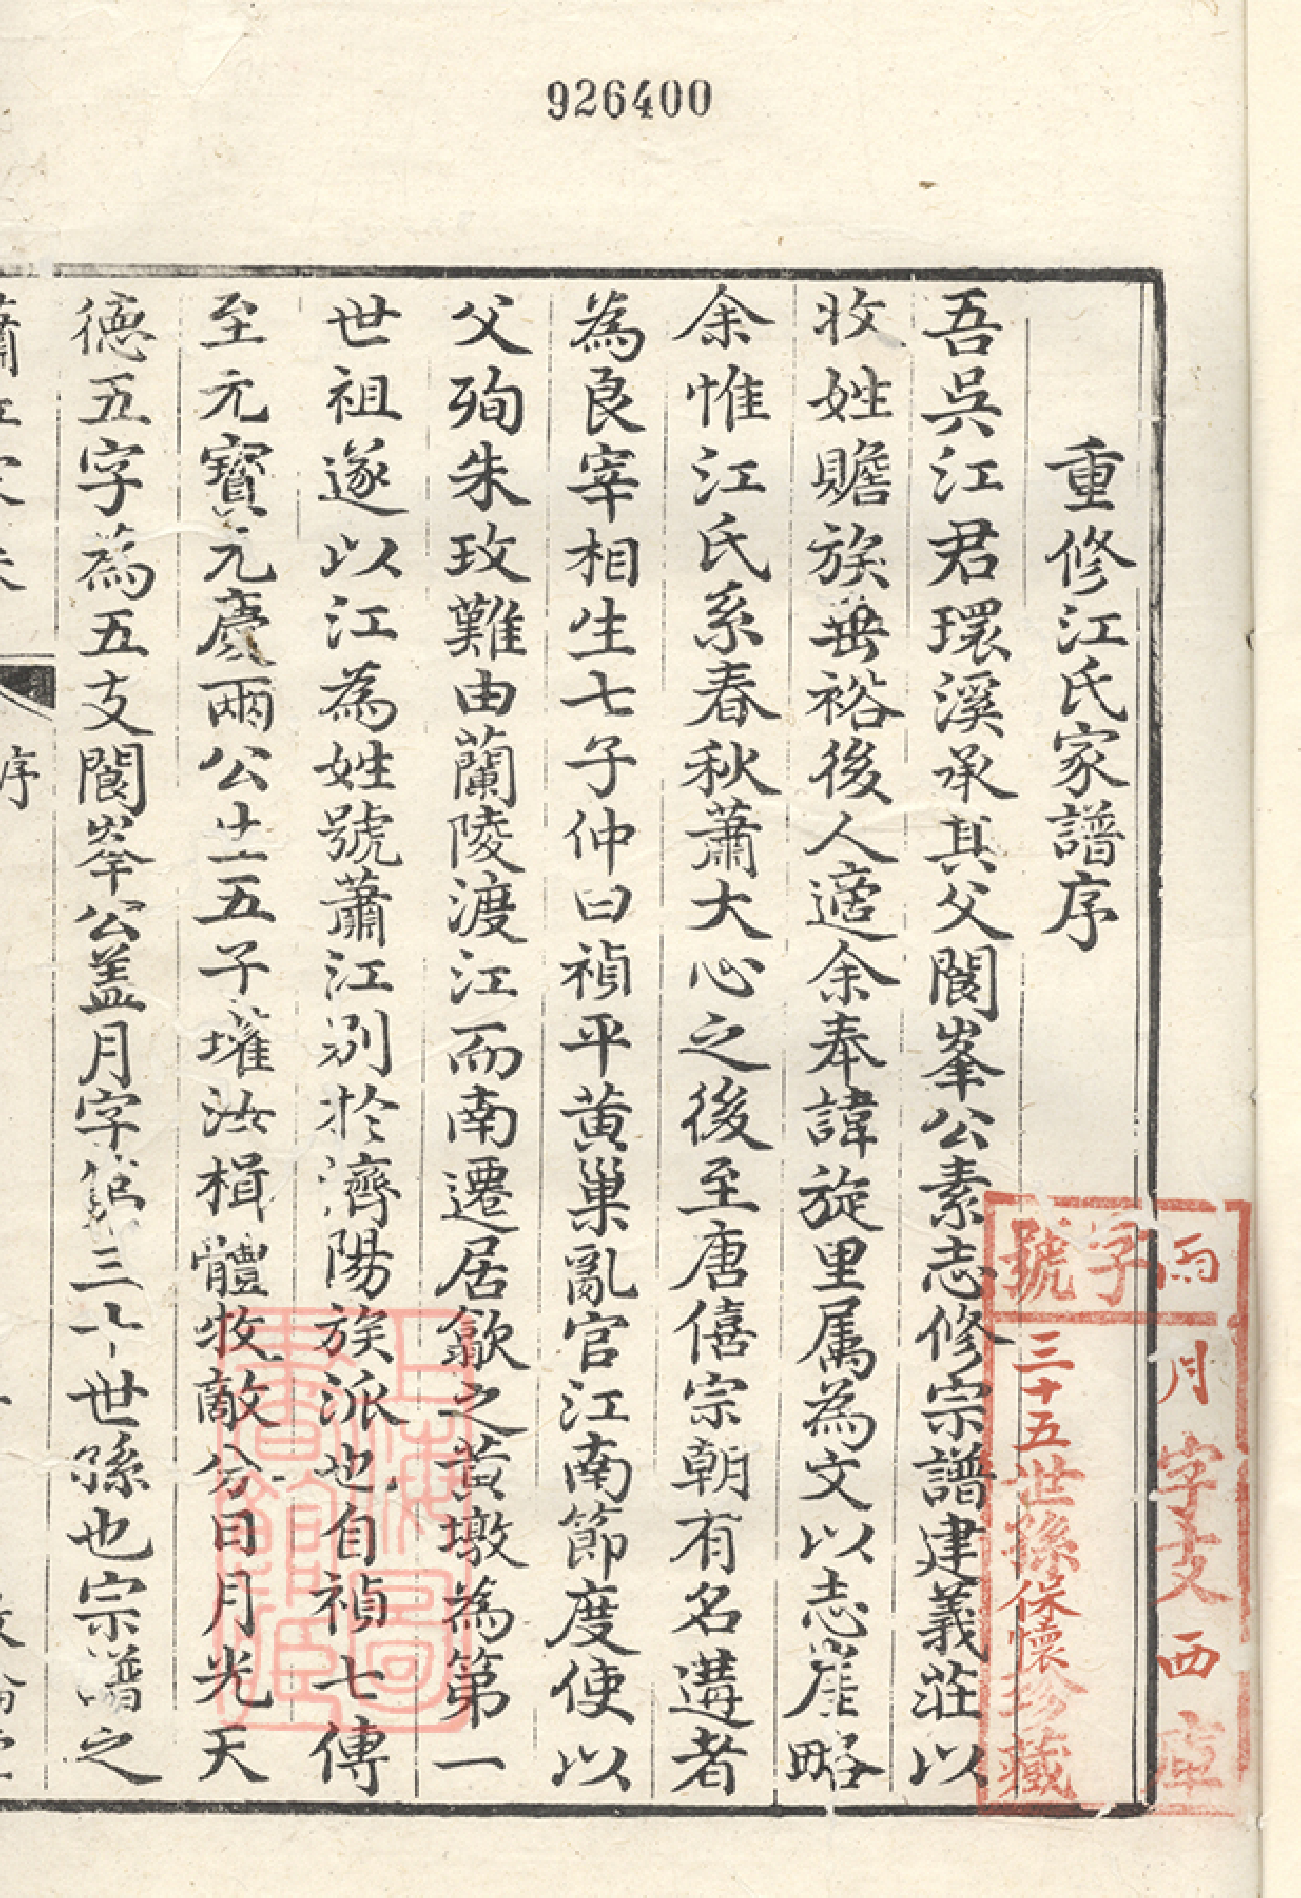 926400
重修江氏家譜序
吾吳江君環溪承其父閬峯公素志修宗譜建義莊以
收姓贍族垂裕後人適余奉諱旋里属為文以志崖略
余惟江氏系春秋蕭大心之後至唐僖宗朝有名遘者
為良宰相生七子仲曰禎平黄巢亂官江南節度使以
父殉朱玫難由蘭陵渡江而南遷居歙之黄墩為第一
世祖遂以江為姓號蕭江別於濟陽族派也自禎七傳
至元寳元慶兩公生五子㩲汝楫體牧敵分日月光天
德五字為五支閬峯公盖月字第三十世孫也宗譜之
序
雨字號
月字支西庫
三十五世孫保懷珍藏
上海圖書館藏